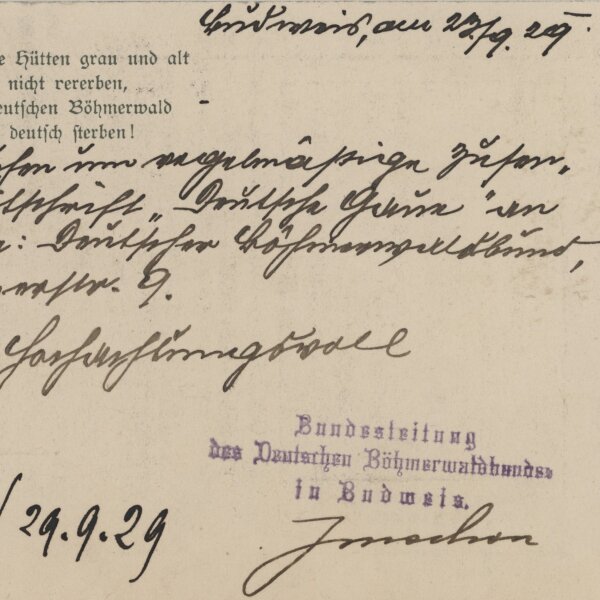 Budweis, am 27/9. 29.
e Hütten grau und alt
nicht rererben,
eutschen Böhmerwald
deutsch sterben!
chen um regelmäßige Zusen-
tschrift „Deutsche Gaue" an
e: Deutscher Böhmerwaldbund,
erstr. 9.
Hochachtungsvoll
Bundesleitung
des Deutschen Böhmerwaldbundes
in Budweis.
29.9.29